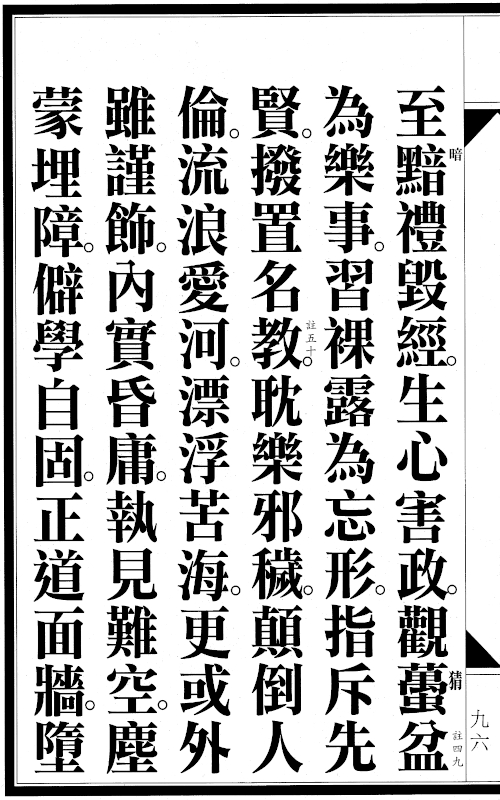 至黯禮毀經。生心害政。觀蠆盆
為樂事。習裸露為忘形。指斥先
賢。撥置名教。耽樂邪穢。顛倒人
倫。流浪愛河。漂浮苦海。更或外
雖謹飾。內實昏庸。執見難空。塵
蒙埋障。僻學自固。正道面牆。墮
暗
猜
註四九
註五十
九六